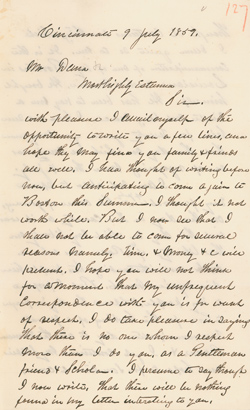 127
Cincinnati 9 July 1859.
Mr Dana
Most highly Esteemed
Sir
with pleasure I avail myself of the
opportunity to write you a few lines, and
hope they may find you family & friends
all well. I had thought of writing before
now, but anticipating to come again to
Boston this Summer I thought it not
worth while. But I now see that I
shall not be able to come for several
reasons namely, Time, & Money & c will
prevent. I hope you will not think
for a moment that my unfrequent
Correspondence with you is for want
of respect. I do take pleasure in saying
that there is no one whom I respect
more than I do you, as a Gentleman
friend & Scholar. I presume to say though
I now write, that there will be nothing
found in my letter interesting to you.